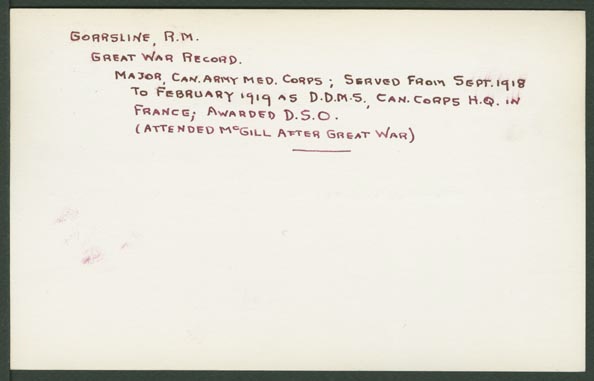 GORRSLINE, R.M.
GREAT WAR RECORD.
MAJOR, CAN. ARMY MED. CORPS; SERVED FROM SEPT. 1918
TO FEBRUARY 1919 AS D.D.M.S., CAN. CORPS H.Q. IN
FRANCE; AWARDED D.S.O.
(ATTENDED McGILL AFTER GREAT WAR)